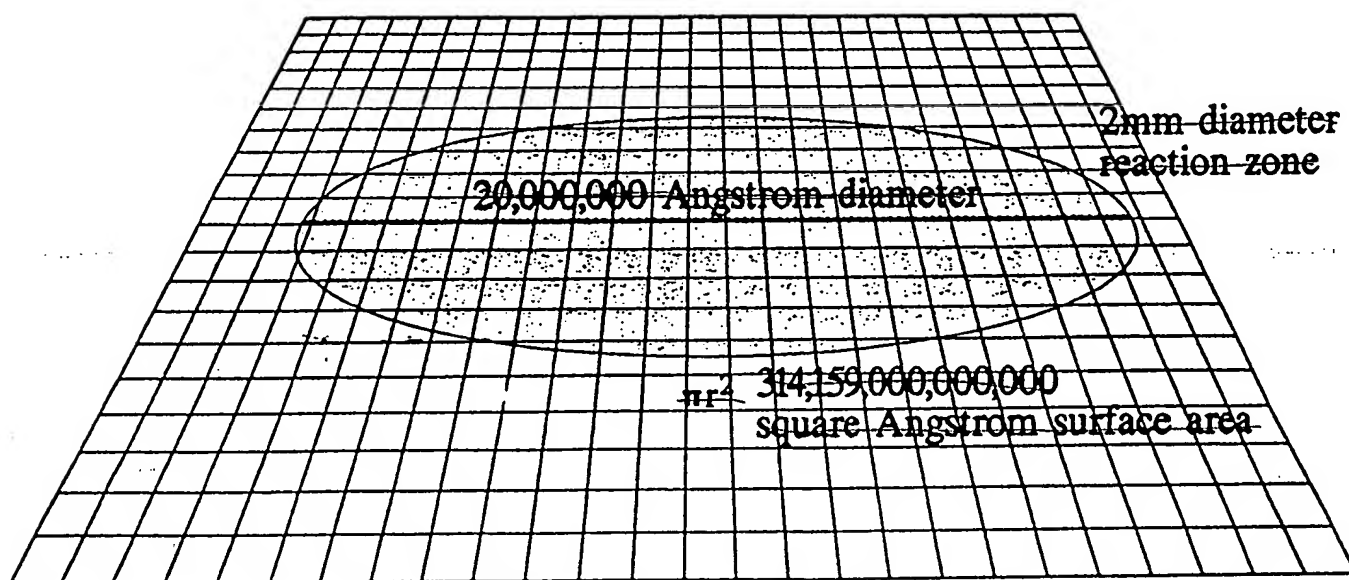 2mm diameter
reaction zone
20,000,000 Angstrom diameter
πr² 314,159,000,000,000
square Angstrom surface area